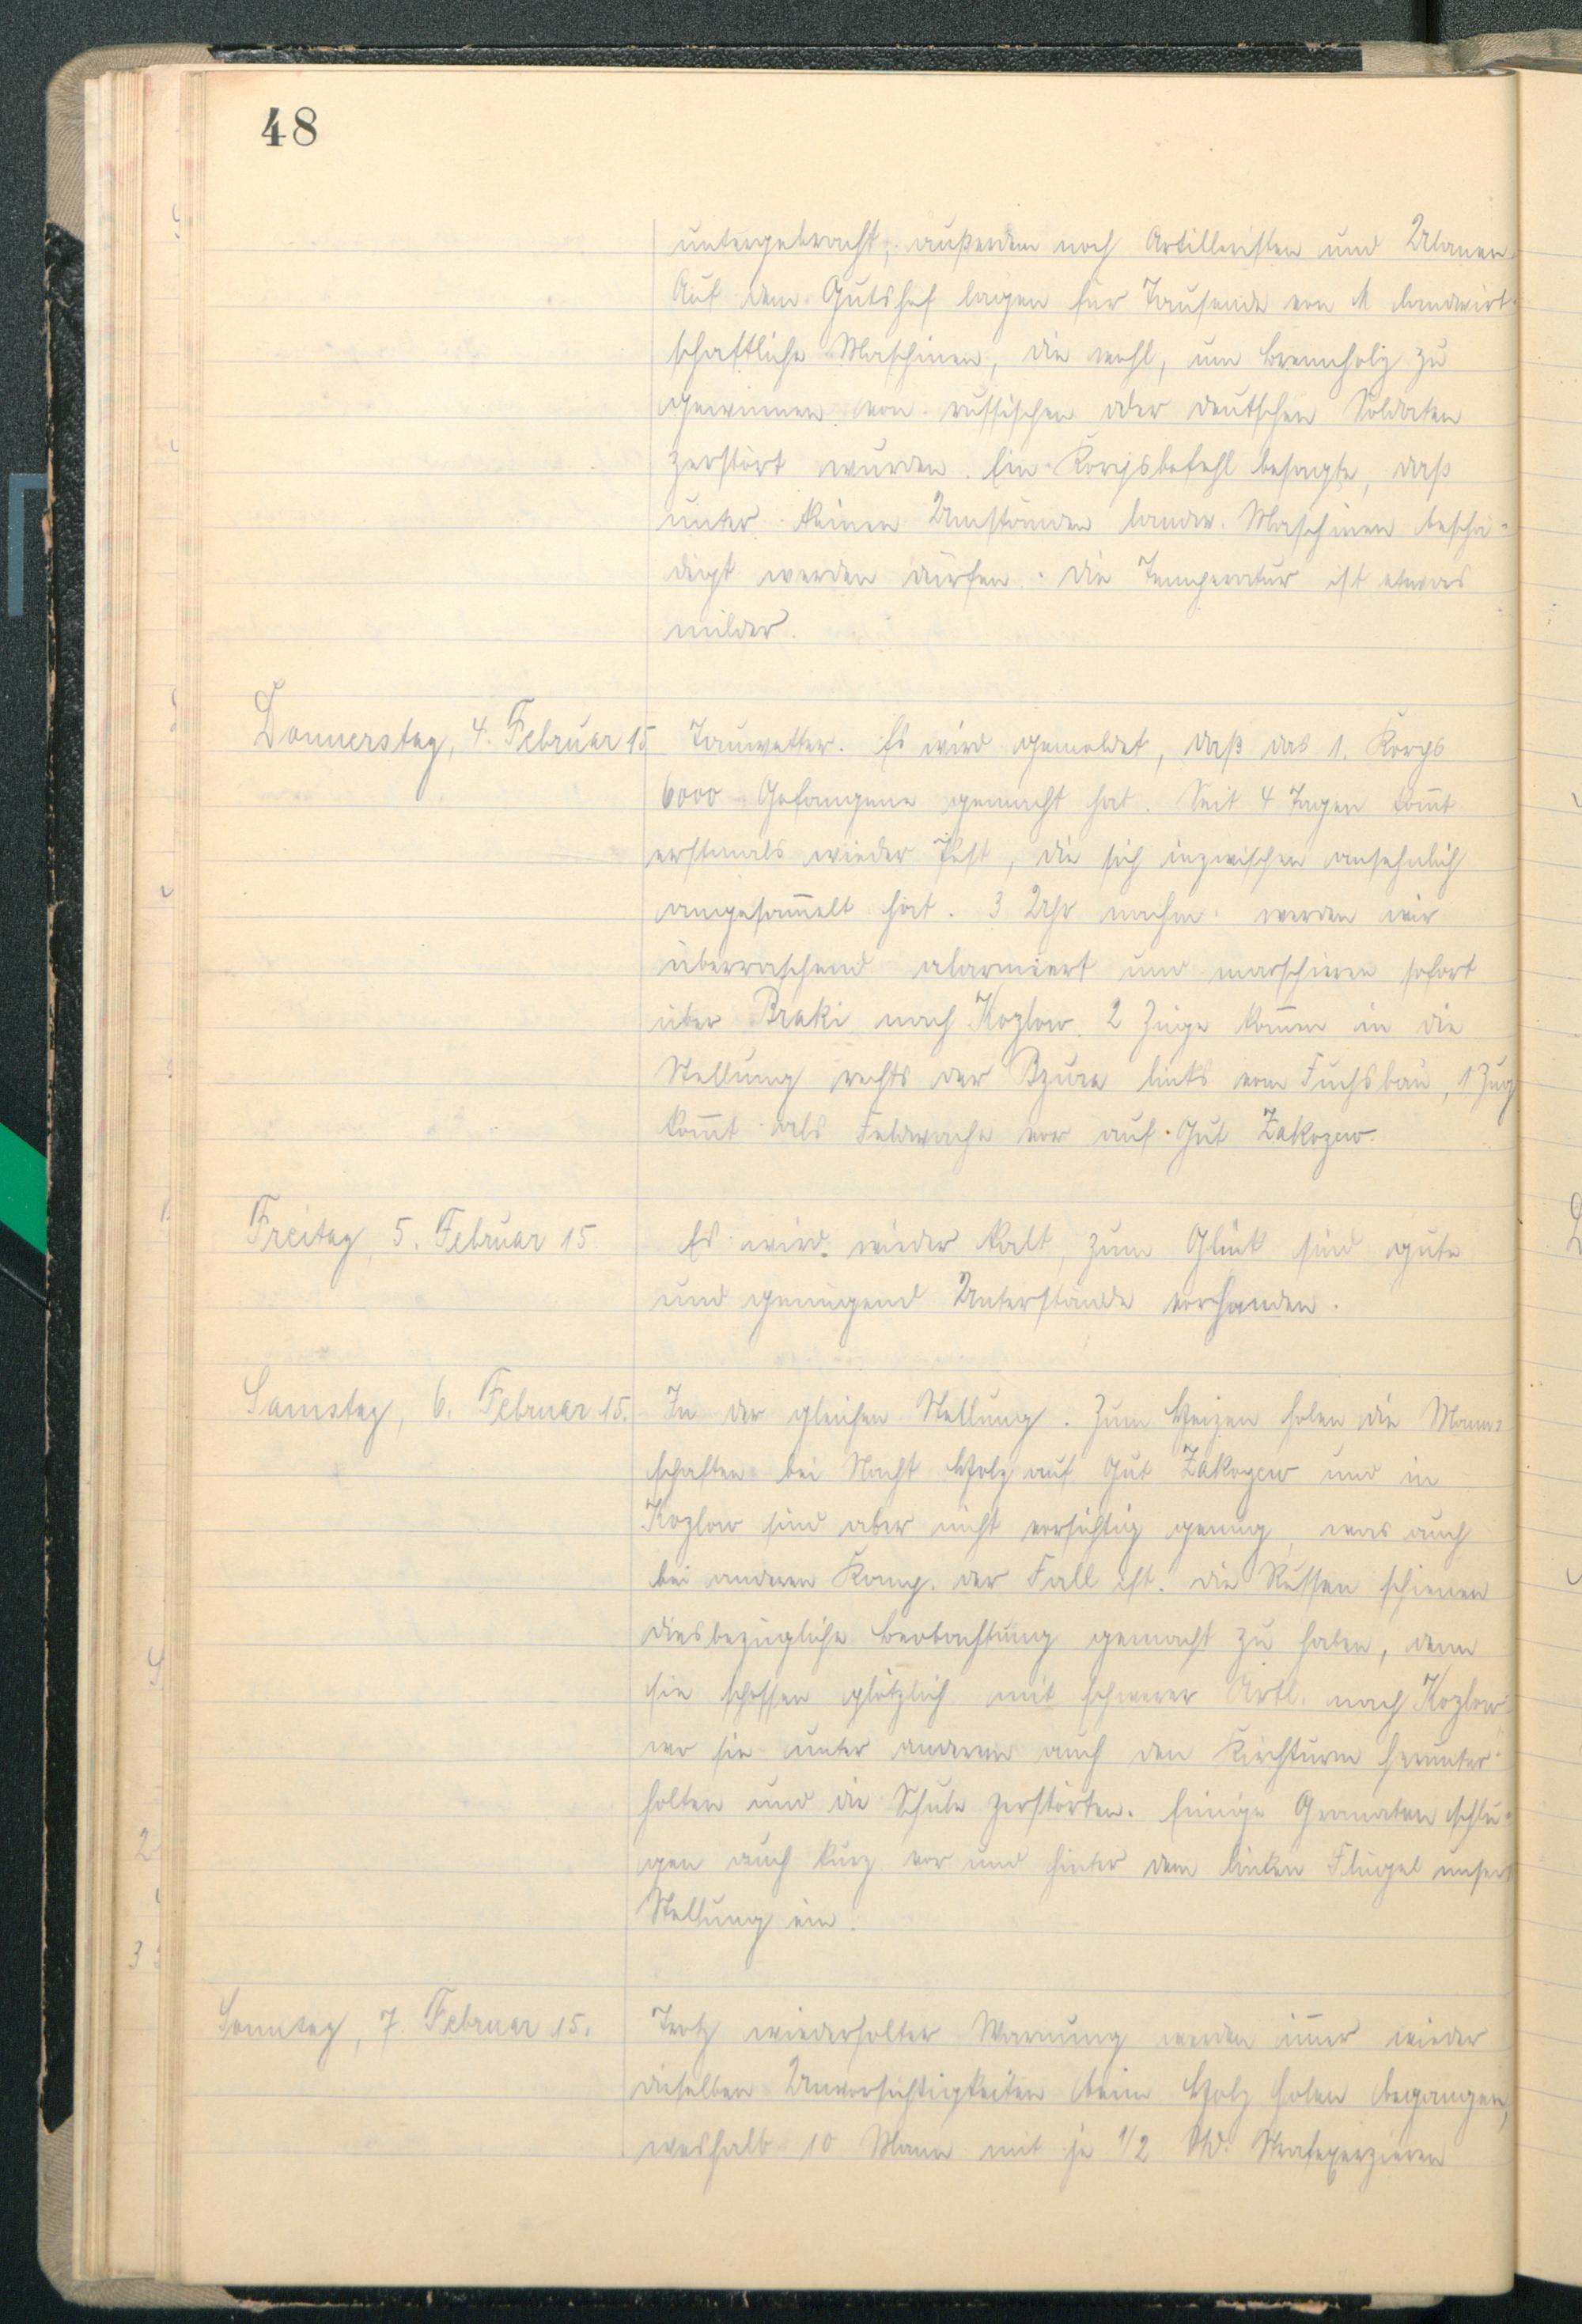 48
untergebracht, außerdem noch Artilleristen und Ulanen.
Auf dem Gutshof lagen für Tausende von M landwirt-
schaftliche Maschinen, die wohl, um Brennholz zu
gewinnen von russischen oder deutschen Soldaten
zerstört wurden. Ein Korpsbefehl besagte, daß
unter keinen Umständen landw. Maschinen beschä-
digt werden dürfen. Die Temperatur ist etwas
milder.
Donnerstag, 4. Februar 15 Tauwetter. Es wird gemeldet, daß das 1. Korps
6000 Gefangene gemacht hat. Seit 4 Tagen kom̅t
erstmals wieder Post, die sich inzwischen ansehnlich
angesam̅elt hat. 3 Uhr nachm. werden wir
überraschend alarmiert und marschieren sofort
über Braki nach Kozlow. 2 Züge kom̅en in die
Stellung rechts der Bzura links vom Fuchsbau, 1 Zug
kom̅t als Feldwache vor auf Gut Zakozew.
Freitag, 5. Februar 15 Es wird wieder kalt, zum Glück sind gute
und genügend Unterstände vorhanden.
Samstag, 6. Februar 15. In der gleichen Stellung. Zum Heizen holen die Mann-
schaften bei Nacht Holz auf Gut Zakozew und in
Kozlow sind aber nicht vorsichtig genug, was auch
bei anderen Komp. der Fall ist. Die Russen schienen
diesbezügliche Beobachtung gemacht zu haben, denn
sie schossen plötzlich mit schwerer Artl. nach Kozlow
wo sie unter anderem auch den Kirchturm herunter-
holten und die Schule zerstörten. Einige Granaten schlu-
gen auch kurz vor und hinter dem linken Flügel unserer
Stellung ein.
Sonntag, 7. Februar 15. Trotz wiederholter Warnung werden im̅er wieder
dieselben Unvorsichtigkeiten beim Holz holen begangen,
weshalb 10 Mann mit je 1/2 Std. Strafexerzieren